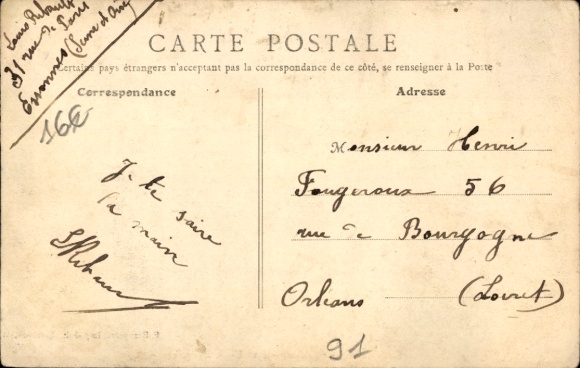 Louis
31 rue de Paris
Essonnes (Seine et Oise)
CARTE POSTALE
Certains pays étrangers n'acceptant pas la correspondance de ce côté, se renseigner à la Poste
Correspondance
Adresse
16€
Monsieur Henri
Fougeroux 56
rue de Bourgogne
Orléans (Loiret)
Je te saire
la main
91